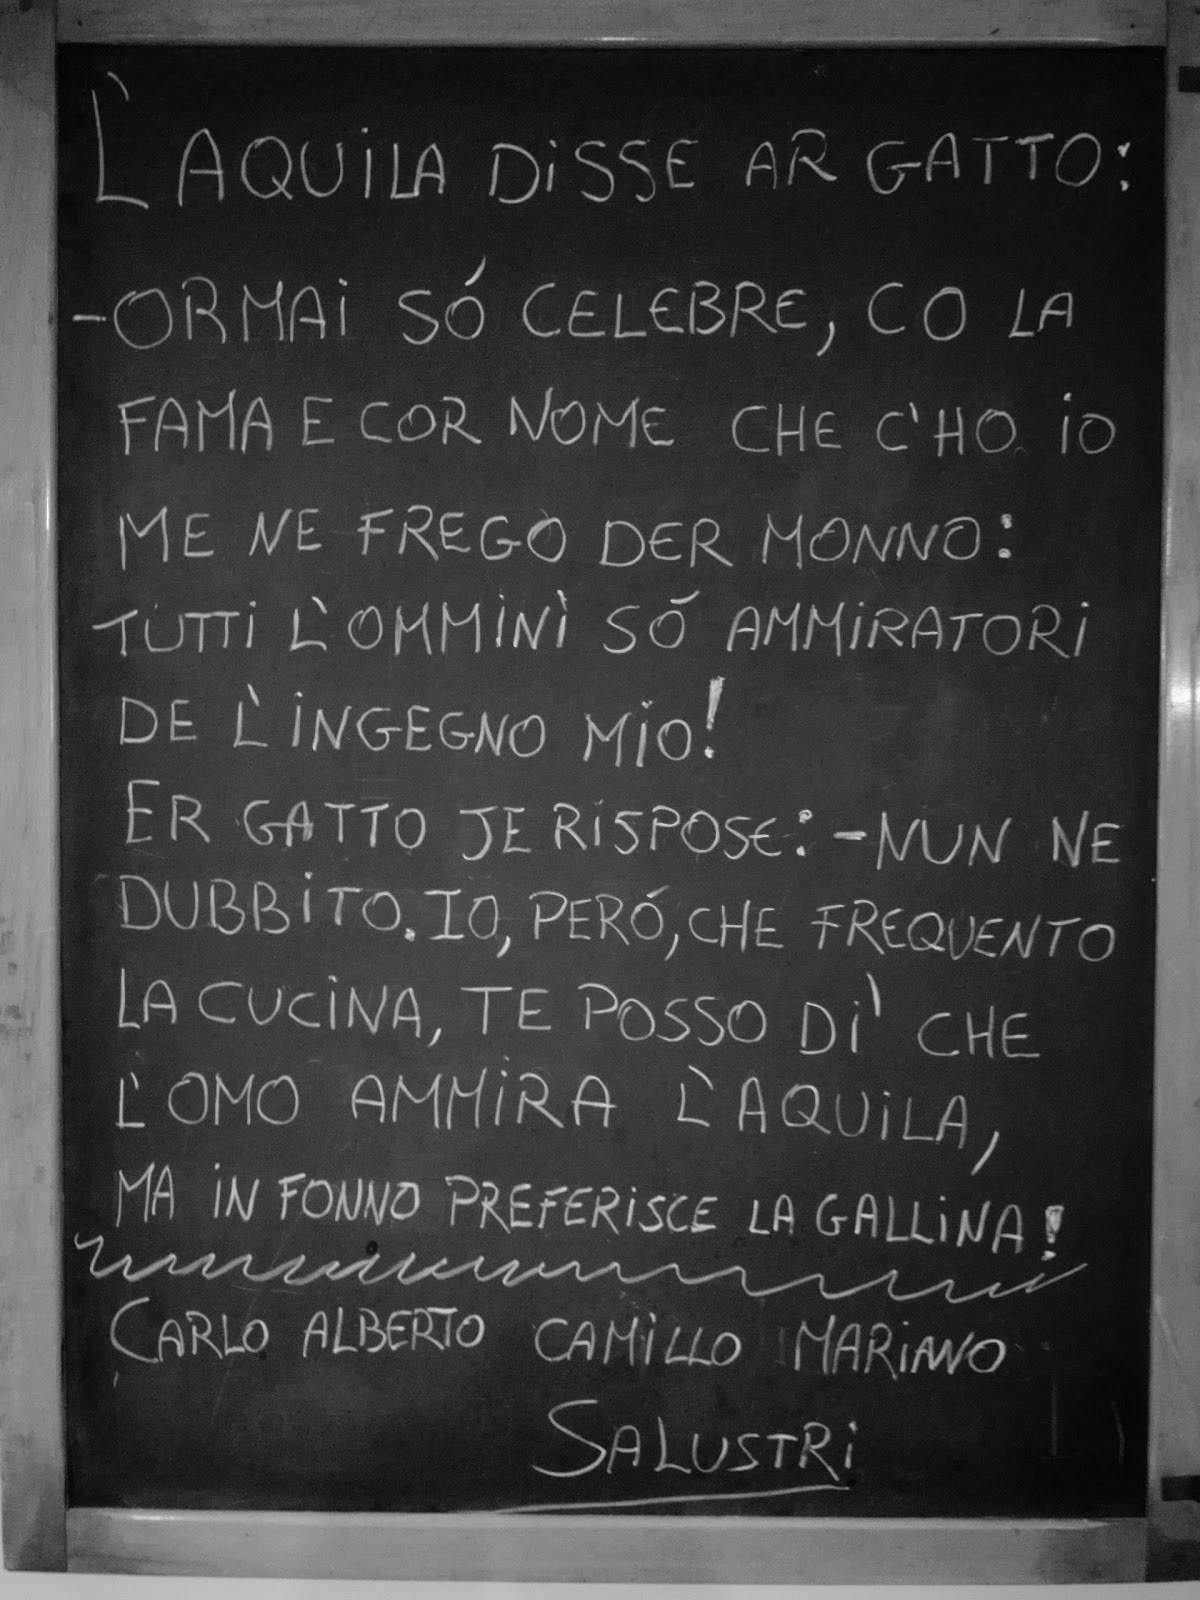 L'AQUILA DISSE AR GATTO:
-ORMAI SÓ CELEBRE, CO LA
FAMA E COR NOME CHE C'HO IO
ME NE FREGO DER MONNO:
TUTTI L'OMMINÌ SÓ AMMIRATORI
DE L'INGEGNO MIO!
ER GATTO JE RISPOSE: -NUN NE
DUBBITO. IO, PERÓ, CHE FREQUENTO
LA CUCINA, TE POSSO DI' CHE
L'OMO AMMIRA L'AQUILA,
MA IN FONNO PREFERISCE LA GALLINA!
CARLO ALBERTO CAMILLO MARIANO
SALUSTRI